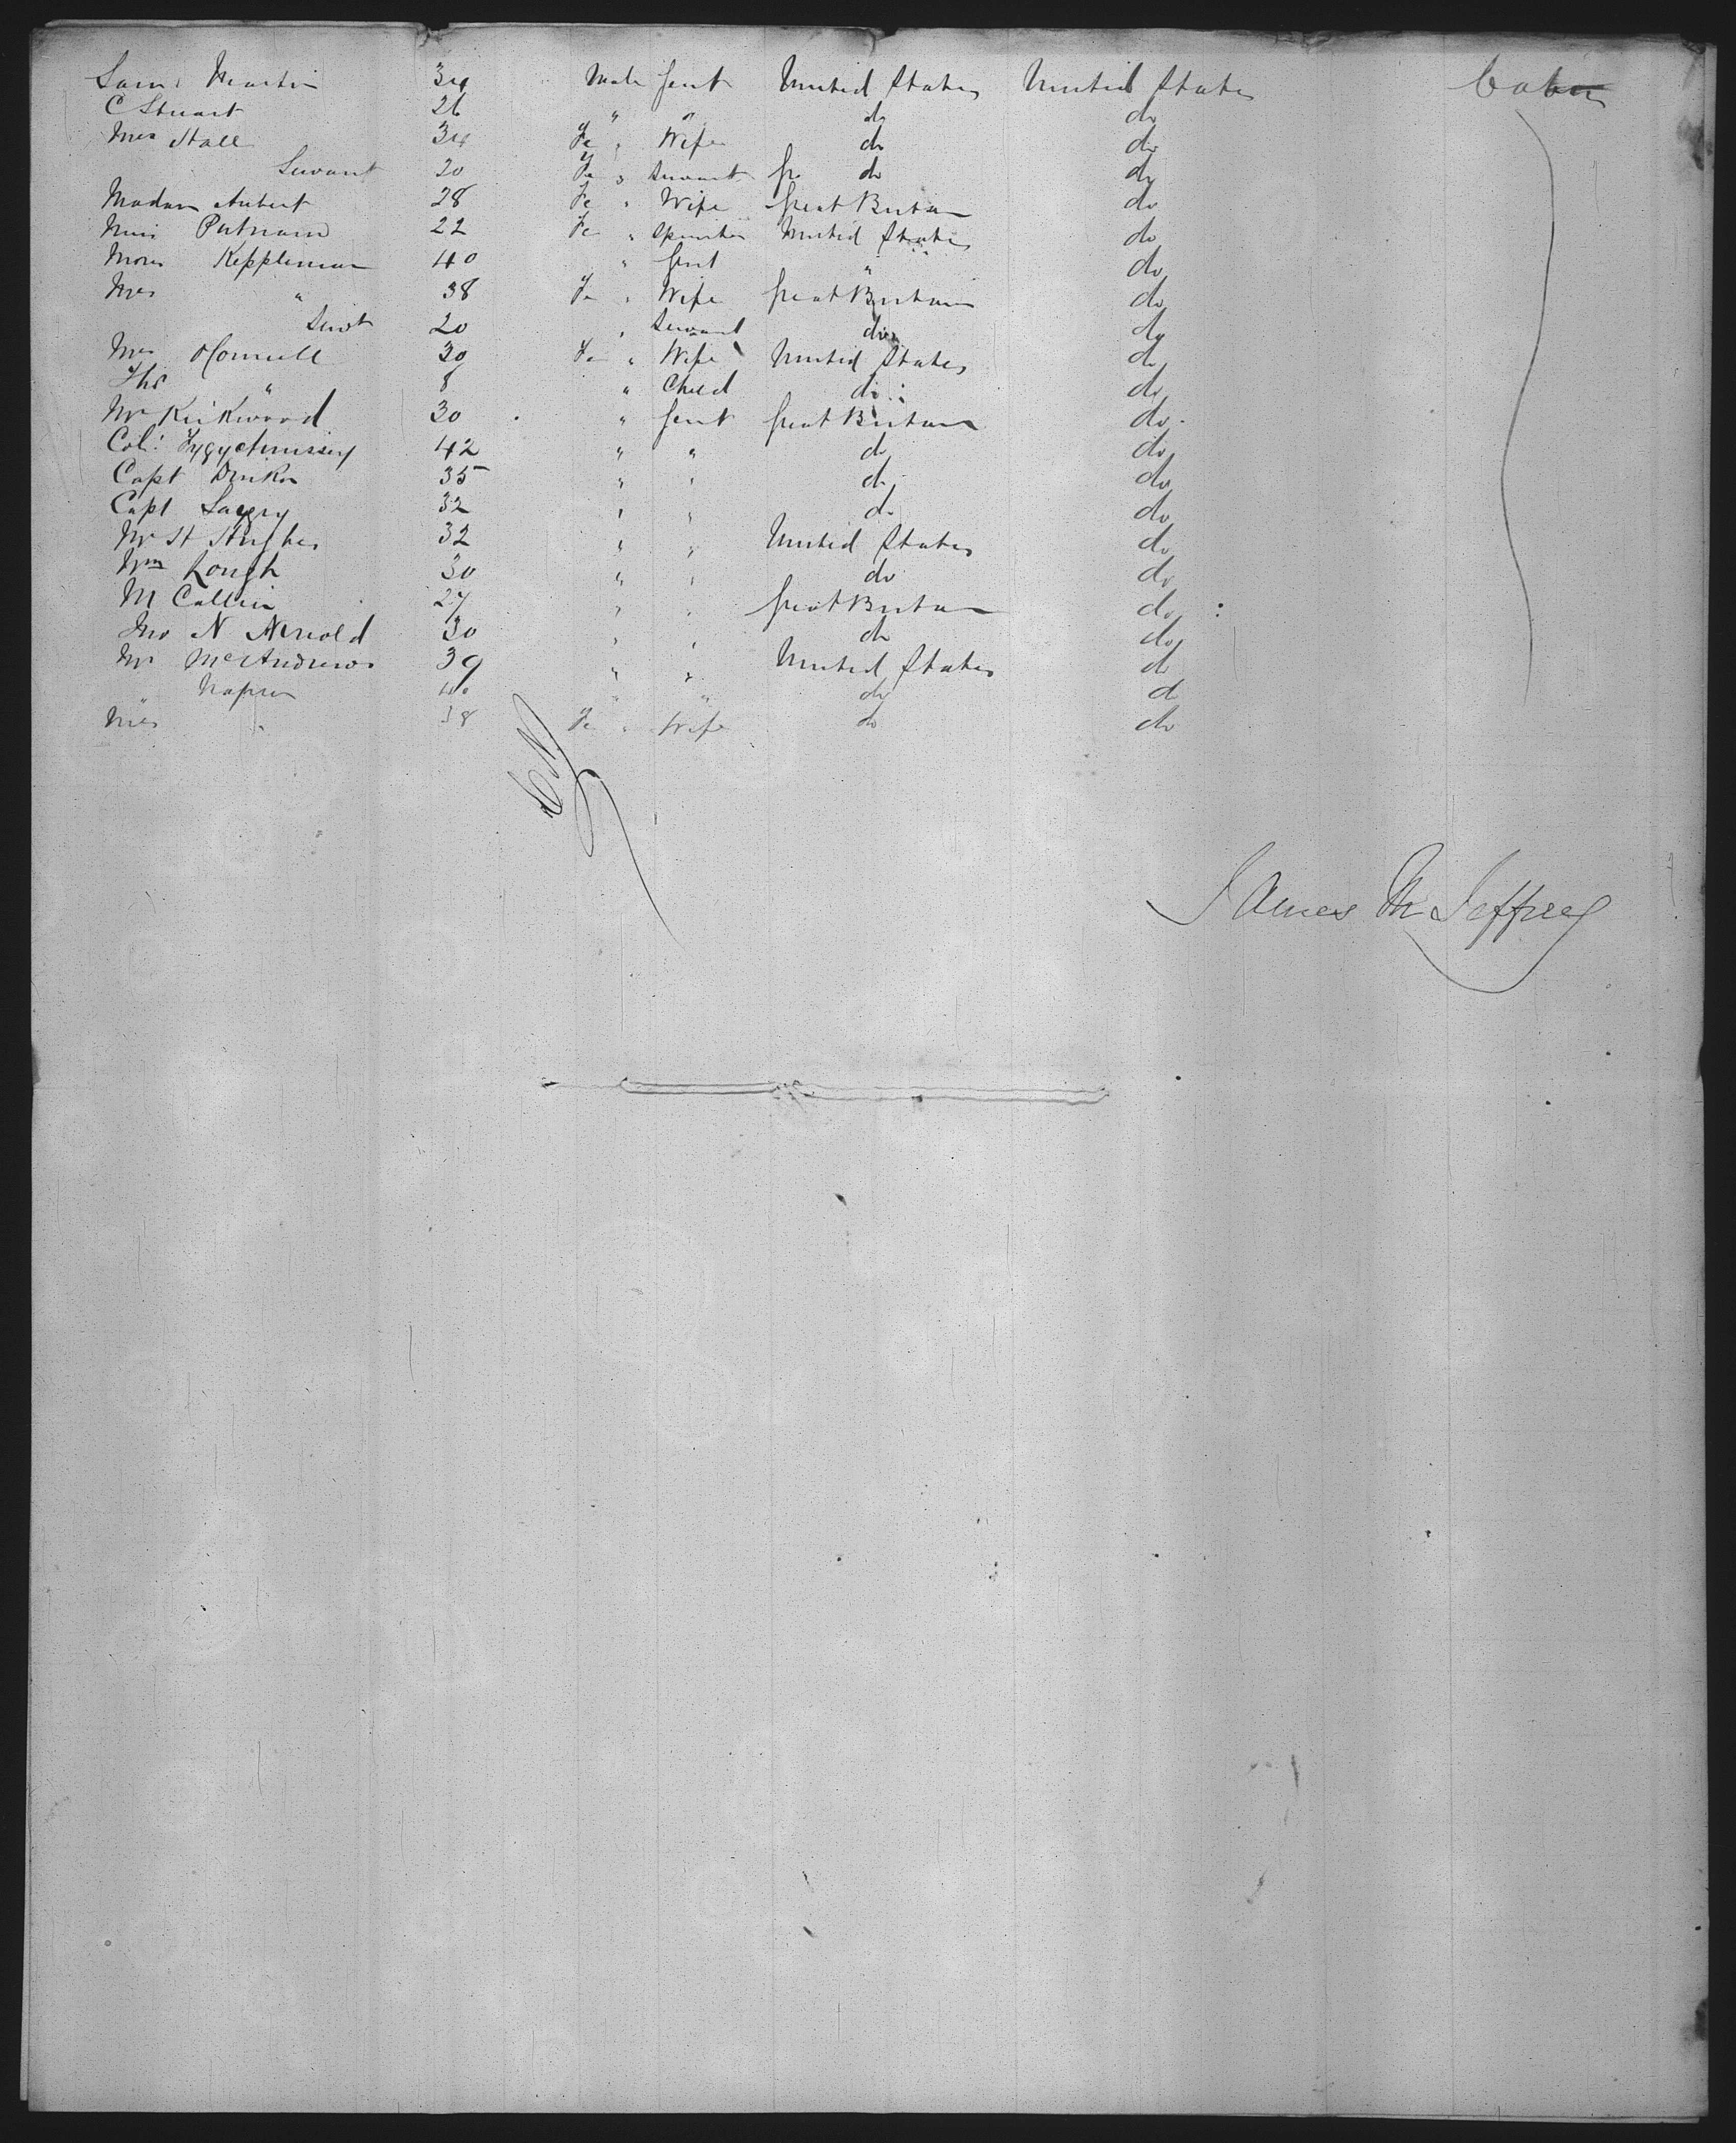 Martin 34 Male Gent United States United States Cabin
C Stuart 26 " " do do
Mrs Hall 34 Fe " Wife do do
Servant 20 Fe " Servant do do
Madam Aubert 28 Fe " Wife Great Britain do
Miss Putnam 22 Fe " Spinster United States do
Keppleman 40 " Gent " do
Mrs " 38 Fe " Wife Great Britain do
Servt 20 " Servant do do
Mrs OConnell 30 Fe " Wife United States do
Ths " 8 " Child do do
Mr Kirkwood 30 " Gent Great Britain do
Col. 42 " " do do
Capt 35 " " do do
Capt 32 " " do do
Mr H Hughes 32 " " United States do
Wm Lough 30 " " do do
M Callin 27 " " Great Britain do
Jno N 30 " " do do
Mr McAndrews 39 " " United States do
" Napier 40 " " do do
Mrs " 38 Fe " Wife do do
69
James M Jeffrey